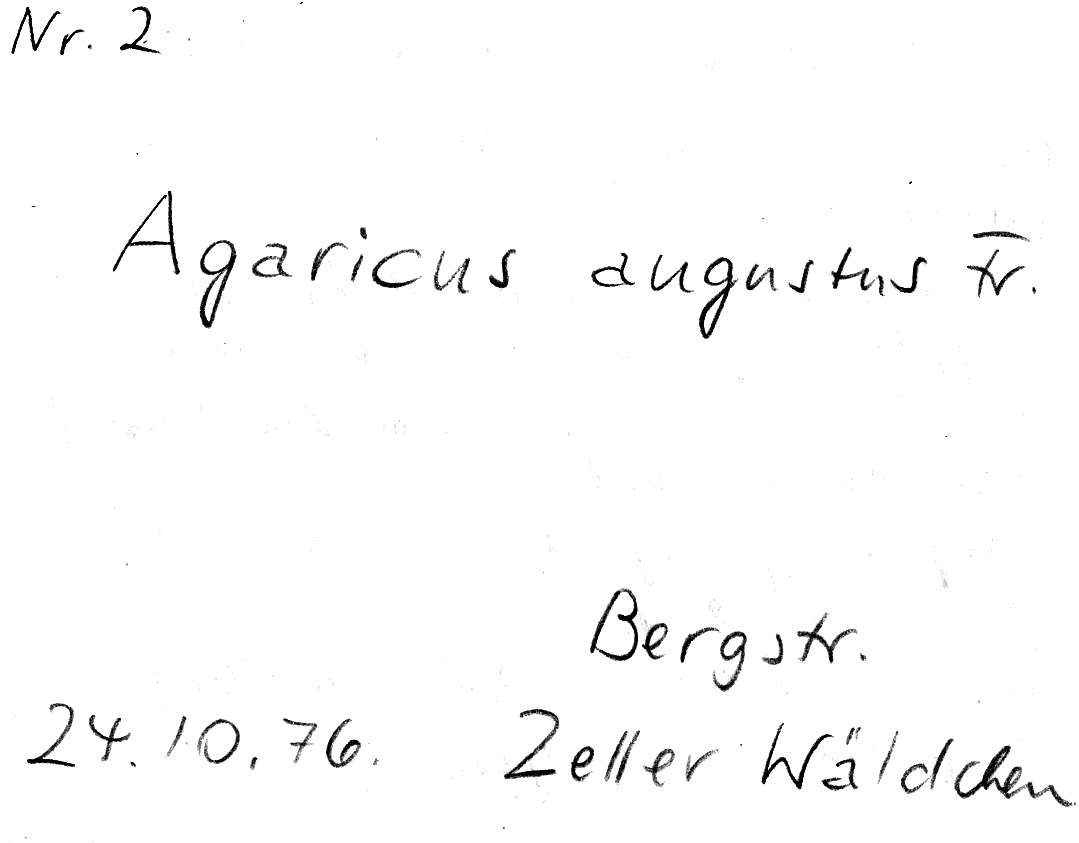 Nr. 2
Agaricus augustus Fr.
Bergstr.
24.10.76. Zeller Wäldchen